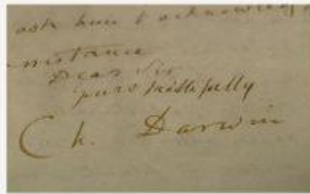 ask him to acknowledge
mstance
Dear Sir
yours faithfully
Ch. Darwin